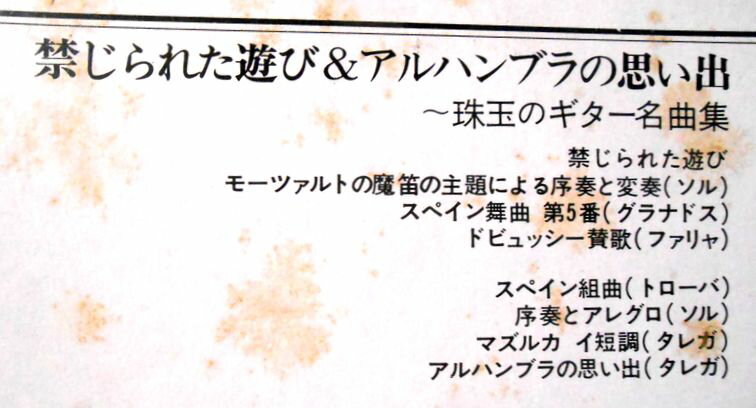 禁じられた遊び&アルハンブラの思い出
~珠玉のギター名曲集
禁じられた遊び
モーツァルトの魔笛の主題による序奏と変奏(ソル)
スペイン舞曲 第5番(グラナドス)
ドビュッシー賛歌(ファリャ)
スペイン組曲(トローバ)
序奏とアレグロ(ソル)
マズルカ イ短調(タレガ)
アルハンブラの思い出(タレガ)